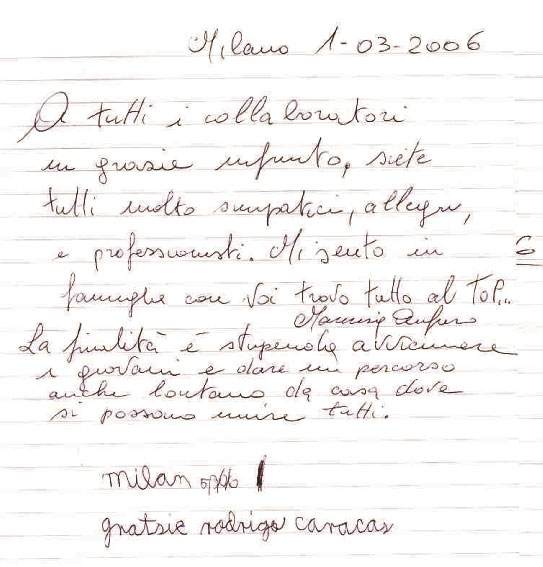 Milano 1-03-2006
A tutti i collaboratori
un grazie infinito, siete
tutti molto simpatici, allegri,
e professionisti. Mi sento in
famiglia con Voi trovo tutto al TOP...
La finalità è stupenda avvicinare
i giovani e dare un percorso
anche lontano da casa dove
si possono unire tutti.
milan
gratsie rodrigo caracas